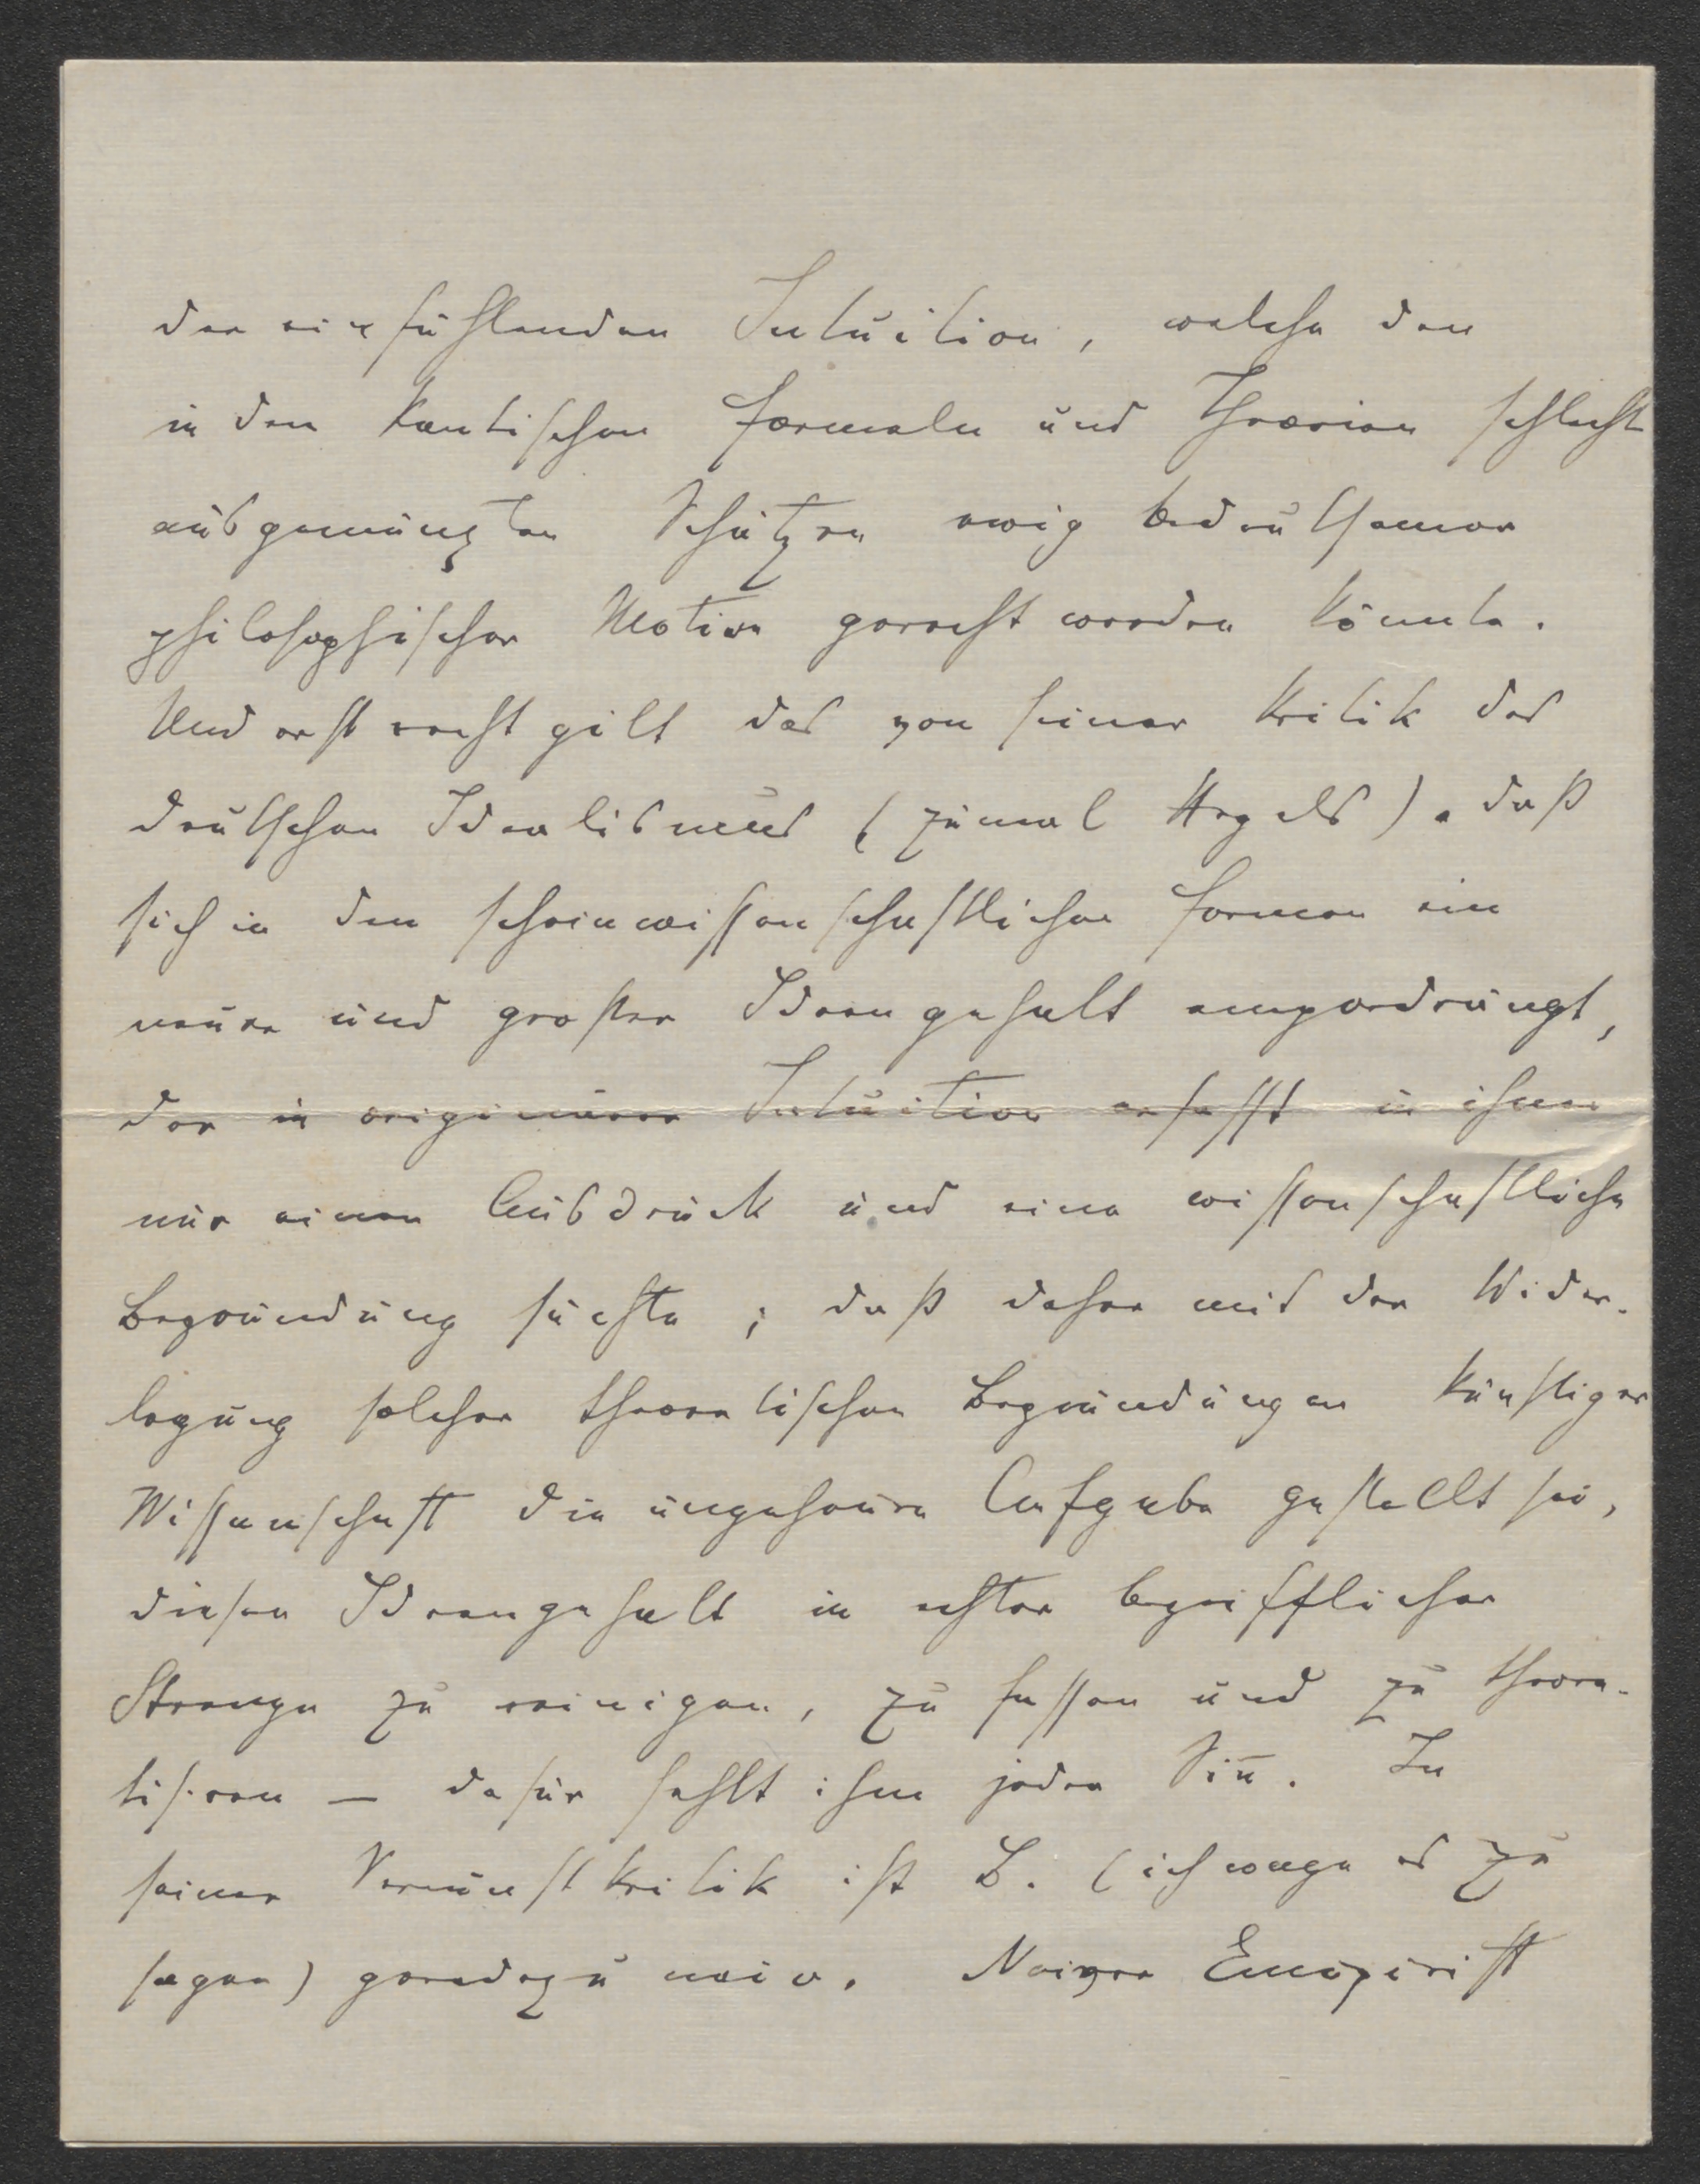 der einfühlenden Intuition, welche den
in den Kantischen Formeln und Theorien schlecht
ausgemünzten Schätzen ewig bedeutsamer
philosophischer Motive gerecht werden könnte.
Und erst recht gilt das von seiner Kritik des
deutschen Idealismus (zumal Hegels). daß
sich in den scheinwissenschaftlichen Formen ein
neuer und großer Ideengehalt empordrängt,
der in originärer Intuition erfasst in ihnen
nur einen Ausdruck und eine wissenschaftliche
Begründung suchte; daß daher mit der Wider-
legung solcher theoretischen Begründungen künftiger
Wissenschaft die ungeheure Aufgabe gestellt sei,
diesen Ideengehalt in echter begrifflicher
Strenge zu reinigen, zu fassen und zu theore-
tisiren — dafür fehlt ihm jeder Sin̄. In
seiner Vernunftkritik ist B. (ich wage es zu
sagen) geradezu naiv. Naiver Empirist